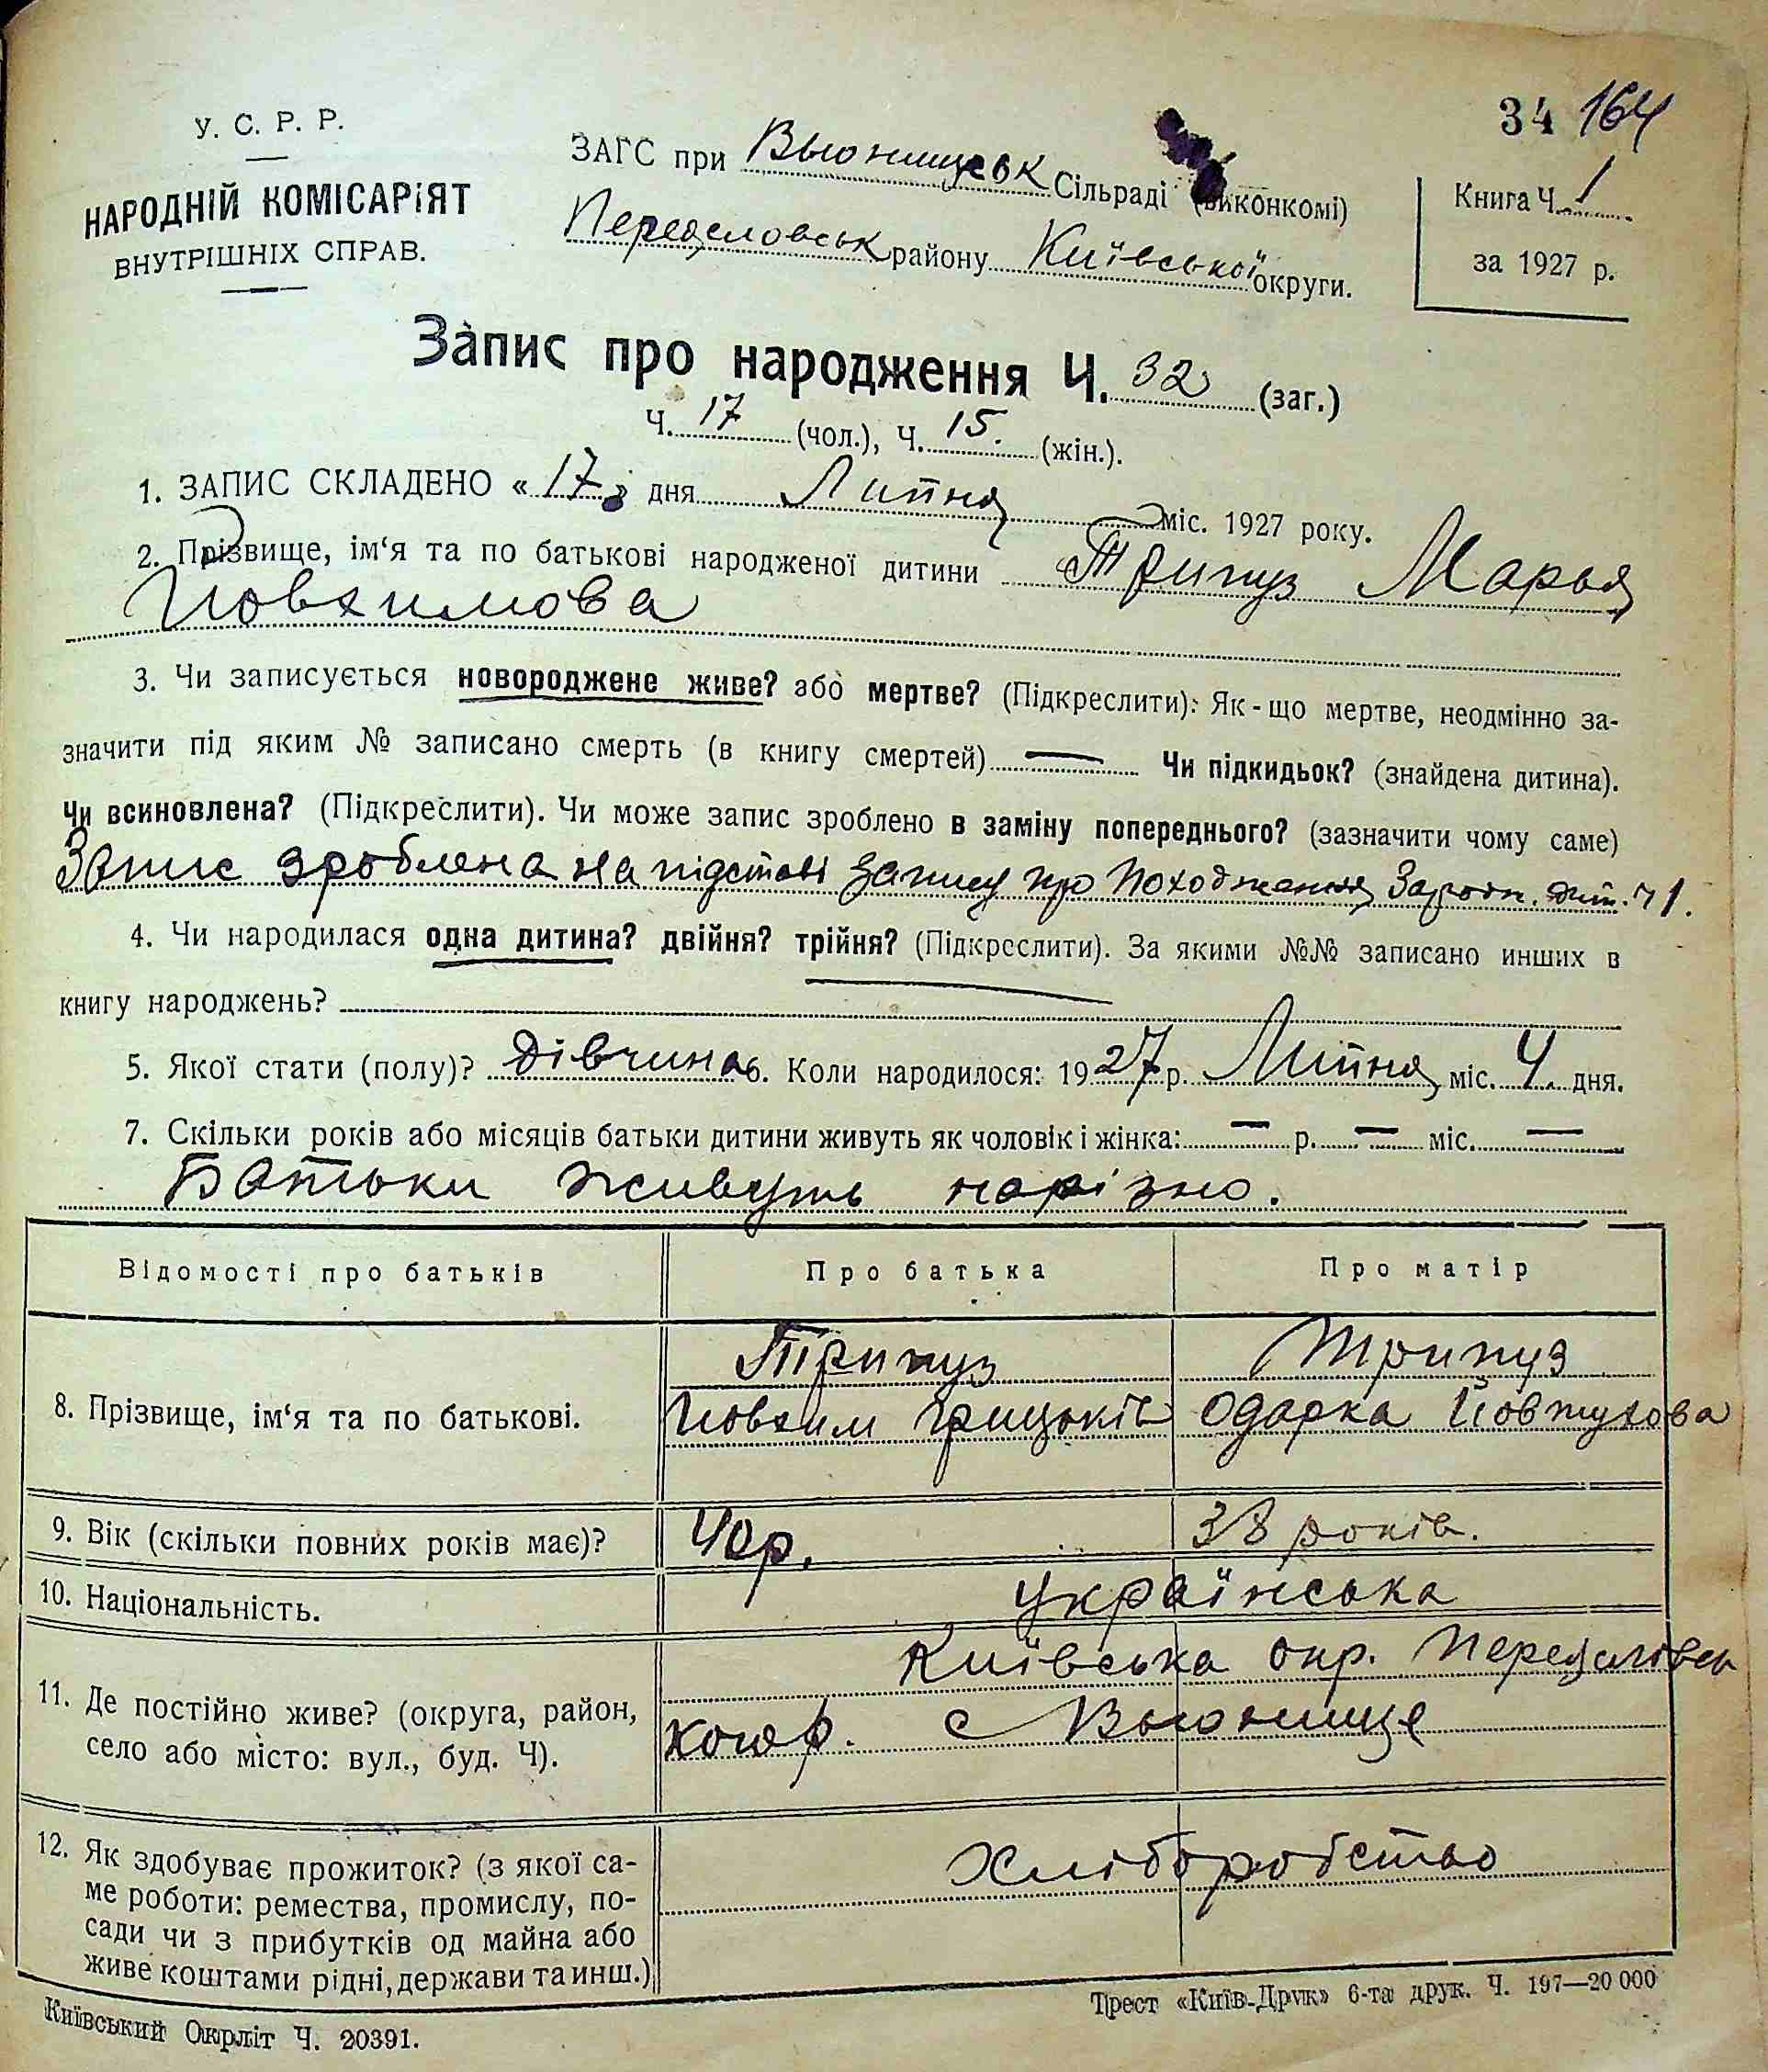 34 164
У. С. Р. Р.
НАРОДНІЙ КОМІСАРІЯТ
ВНУТРІШНІХ СПРАВ.
ЗАГС при Вьюнищськ Сільраді (виконкомі)
Переяславськ району Київської округи.
Книга Ч. 1
за 1927 р.
Запис про народження Ч. 32 (заг.)
Ч. 17 (чол.), Ч. 15. (жін.).
1. ЗАПИС СКЛАДЕНО « 17 » дня Липня міс. 1927 року.
2. Прізвище, ім‘я та по батькові народженої дитини Трипуз Марья
Йовхимова
3. Чи записується новороджене живе? або мертве? (Підкреслити): Як-що мертве, неодмінно за-
значити під яким № записано смерть (в книгу смертей) — Чи підкидьок? (знайдена дитина).
Чи всиновлена? (Підкреслити). Чи може запис зроблено в заміну попереднього? (зазначити чому саме)
Запис зроблена на підставі запису про походження Зародж. дит. Ч 1.
4. Чи народилася одна дитина? двійня? трійня? (Підкреслити). За якими №№ записано инших в
книгу народжень?
5. Якої стати (полу)? Дівчина 6. Коли народилося: 1927 р. Липня міс. 4. дня.
7. Скільки років або місяців батьки дитини живуть як чоловік і жінка: — р. — міс. —
Батьки живуть нарізно.
Відомості про батьків Про батька Про матір
8. Прізвище, ім‘я та по батькові.
Трипуз Трипуз
Йовхим Грицьків Одарка Йовтухова
9. Вік (скільки повних років має)? 40 р. 38 років.
10. Національність. Українська
11. Де постійно живе? (округа, район,
село або місто: вул., буд. Ч).
Київська окр. Переяслівсь
кого р. с Вьюнище
12. Як здобуває прожиток? (з якої са-
ме роботи: ремества, промислу, по-
сади чи з прибутків од майна або
живе коштами рідні, держави та инш.)
Хліборобство
Київський Окрліт Ч. 20391.
Трест «Київ-Друк» 6-та друк. Ч. 197—20 000